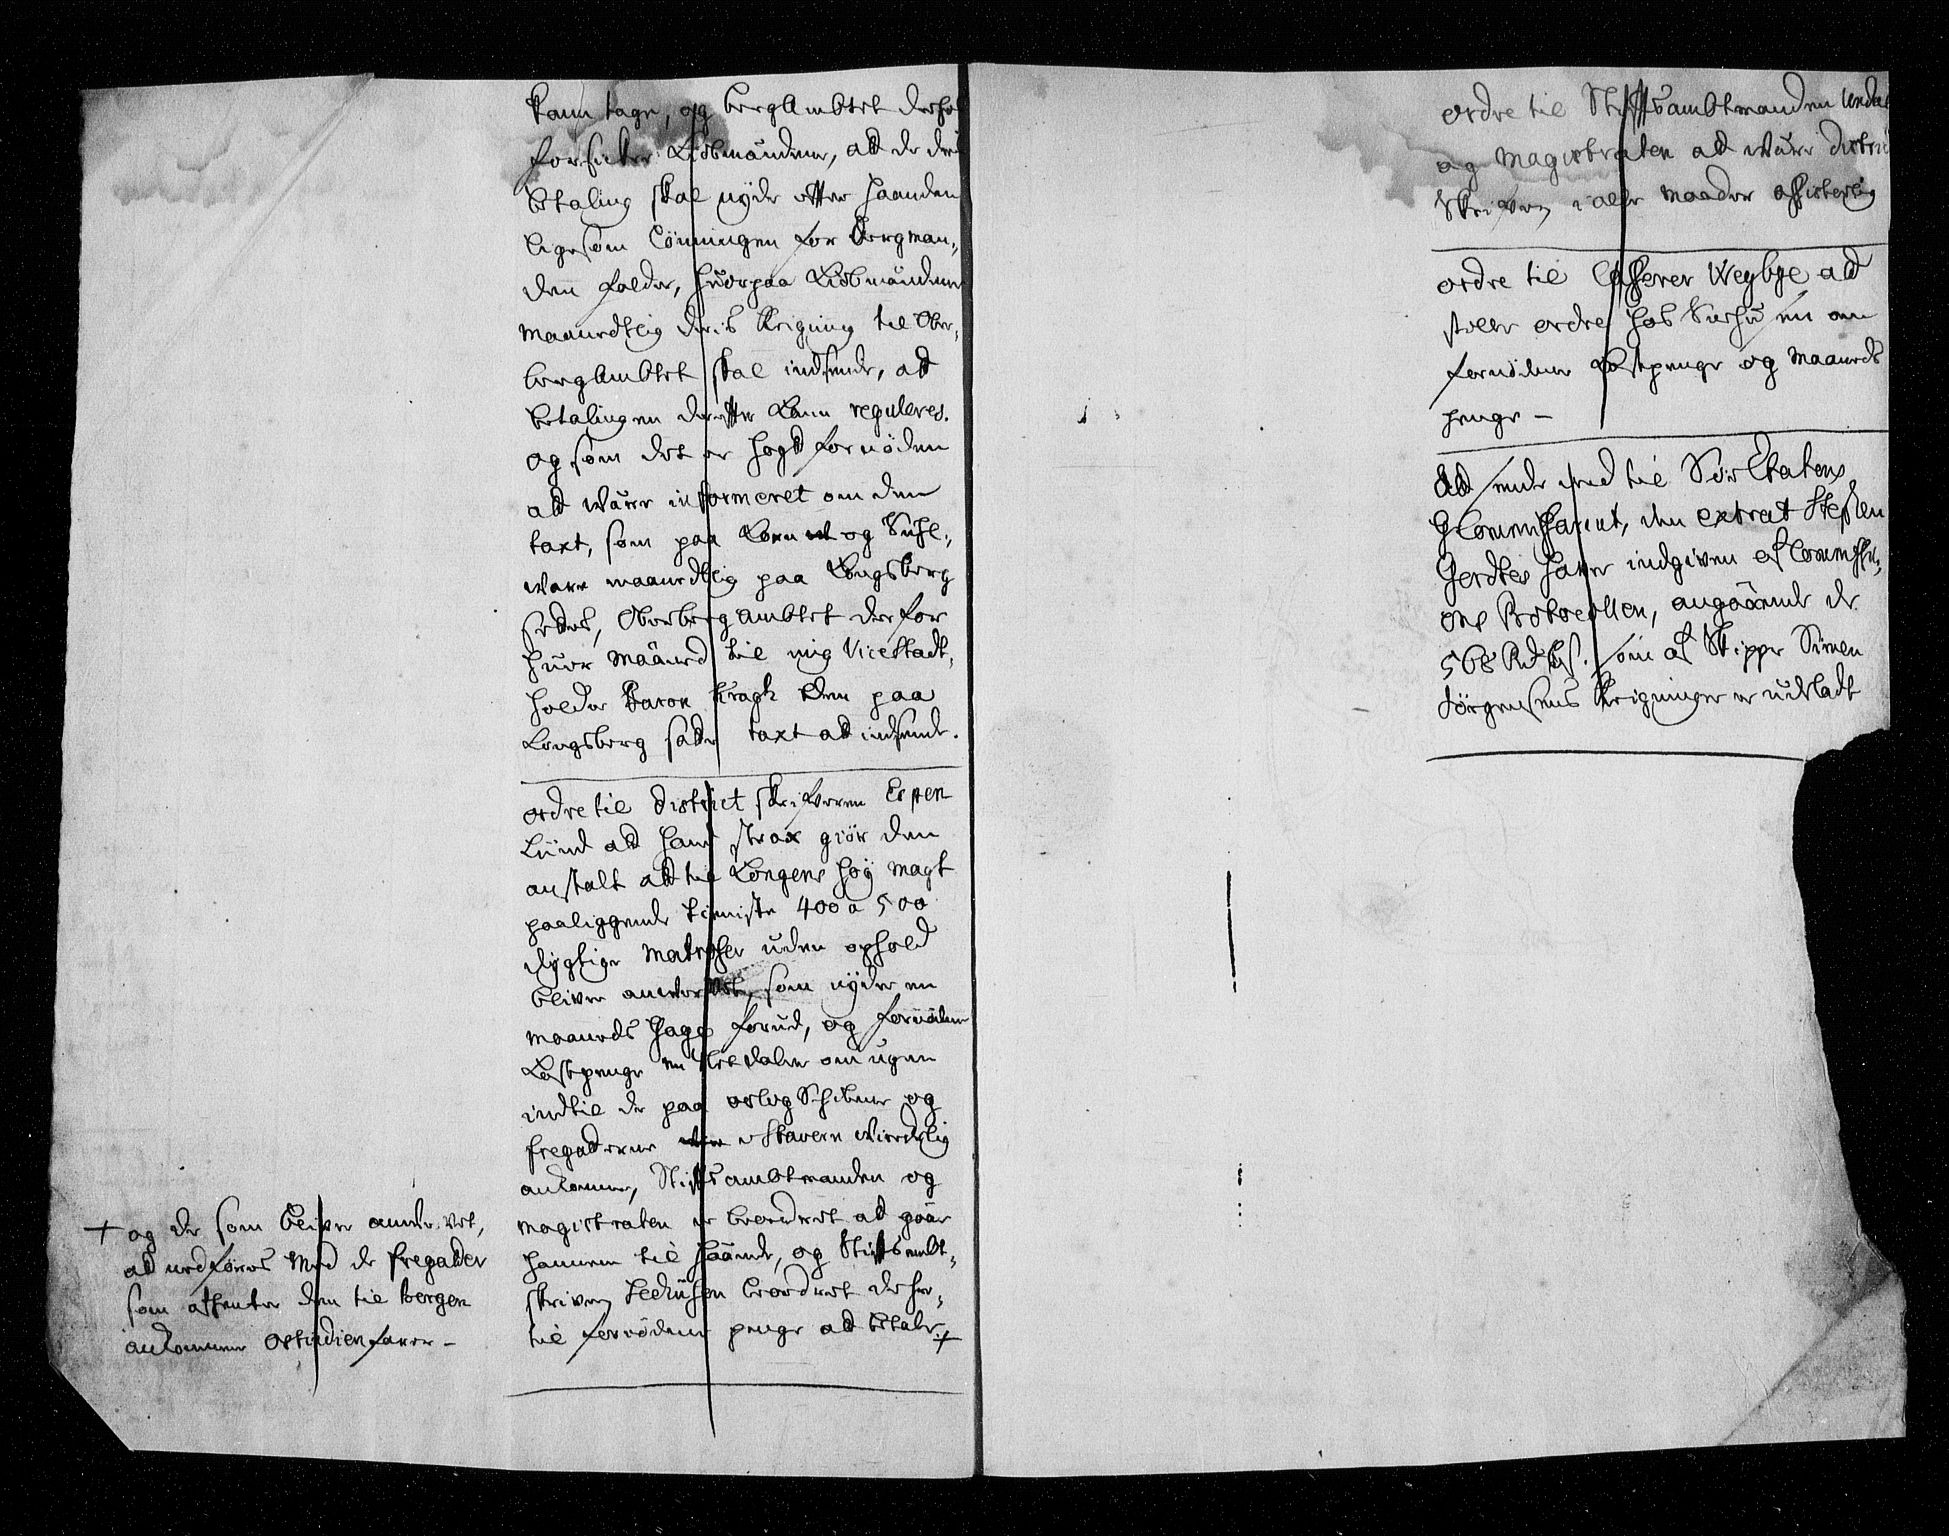 kann tage, og bergAmbtet dersom
forsickre Kiøbmændene, att de deris
betaling skal nyde effter haanden
ligesom Lönningen for Bergman,,
den falder, huorpaa Kiøbmændene
maanedtlig deris Reigning til Ober,,
bergAmbtet skal indsende, att
betalingen dereffter kann reguleres.
og som det er högt fornöden
att være informeret om den
taxt, som paa Korn og
ware maanedtlig paa Kongsberg
settes, Oberbergambtet derfor
huer Maaned til mig ViceStadt,,
holder Baron Kragh dem paa
Kongsberg satte taxt att indsende.
ordre til districtskrifveren Espen
Lund att hand strax giör den
anstalt att til Kongens höy magt
paaliggende tieniste 400 a 500
dygtige Matroser uden ophold
bliver anwervet, som nyder en
maaneds hage forud, og fornöden
Kostpenge en Rixdaler om ugen
indtil de paa orlog Schibene og
fregatterne i Stavern wirchelig
ankommer, Stifftsambtmanden og
magistraten er beordret at gaae
hannem til haande, og Stifftsambt,,
skriver beordret der her,,
til fornödene penge at betale +
+ og de som bliver anwervet,
att udföres med de fregatter
som afhenter den til bergen
ankommen ostindienfarer -
ordre til Stifftsambtmanden
og Magistraten att være district
skrifver i alle maader assisterlig
ordre til Casserer Weybye att
stille ordre hos om
fornödene Kostpenge og Maaneds
penge -
Att sende ned til Söe Etatens
G Commissariat, den extract Steffen
Gerdtes hafver indgiven af Commissi,,
ons Protocollen, angaaende de
568 Rdl som af Skipper Simen
Jörgensens Reigninger er udsladt